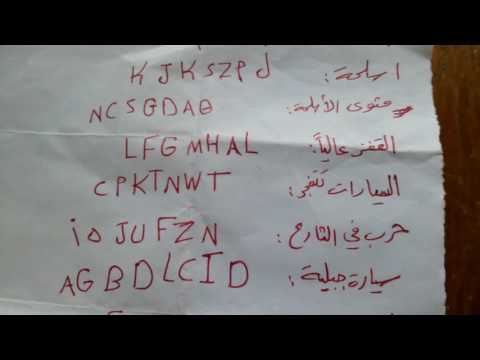 اسلحة: KJKSZPJ
الأسلحة: NCSGDAG
القفز عالياً: LFGMHAL
السيارات تتفجر: CPKTNWT
حرب في الشارع: iOJUFZN
سيارة جبلية: AGBDLCID